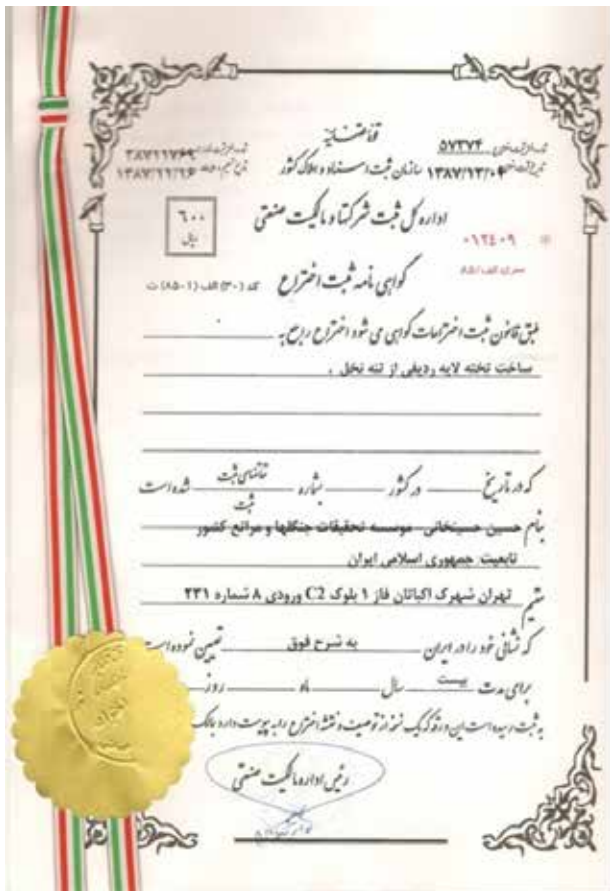 قوه قضائیه
شماره ثبت اختراع ۵۷۳۷۴
تاریخ ثبت اختراع ۱۳۸۷/۱۲/۰۴
سازمان ثبت اسناد و املاک کشور
۳۸۷۱۱۷۶۹
۱۳۸۷/۱۱/۱۶
اداره کل ثبت شرکتها و مالکیت صنعتی
۶۰۰
ریال
۰۱۲۴۰۹
سری الف/۸۵
گواهی نامه ثبت اختراع
کد (۳۰) الف (۱-۸۵) ت
طبق قانون ثبت اختراعات گواهی می شود اختراع راجع به
ساخت تخته لایه ردیفی از تنه نخل .
که در تاریخ در کشور بشماره تقاضای ثبت شده است
ثبت
بنام حسین حسینخانی- موسسه تحقیقات جنگلها و مراتع کشور
تابعیت جمهوری اسلامی ایران
مقیم تهران شهرک اکباتان فاز ۱ بلوک C2 ورودی ۸ شماره ۲۳۱
که نشانی خود را در ایران به شرح فوق تعیین نموده است
برای مدت بیست سال ماه روز
به ثبت رسیده است این ورقه که یک نسخه از توصیف و نقشه اختراع را به پیوست دارد بمالک
رئیس اداره مالکیت صنعتی